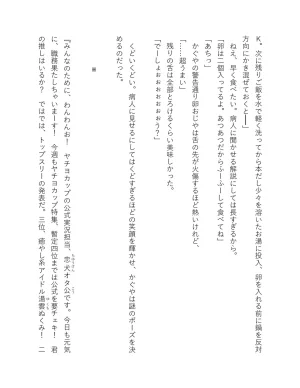 K。次に残りご飯を水で軽く洗ってから本だし少々を溶いたお湯に投入、卵を入れる前に鍋を反対
方向にかき混ぜておくと――」
　ねえ、早く食べたい。病人に聞かせる解説にしては長すぎるから。
「卵は二個入ってるよ。あつあつだからふーふーして食べてね」
「あちっ」
　かぐやの警告通り卵おじやは舌の先が火傷するほど熱いけれど、
「……超うまい」
「でーしょぉおおおおおぉう？」
　残りの舌は全部とろけるくらい美味しかった。
　くどいくどい。病人に見せるにしてはくどすぎるほどの笑顔を輝かせ、かぐやは謎のポーズを決
めるのだった。
※
『みんなのために、わんわんお！　ヤチヨカップの公式実況担当、忠犬オタ公です。今日も元気
に、職務果たしちゃいまーす！　今週もヤチヨカップ特集、暫定順位までは公式を要チェキ！　君
の推しはいるか？　ではでは、トップスリーの発表だ。三位、癒やし系アイドル湯雲ぬくみ！　二